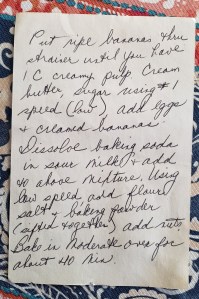 Put ripe bananas thru
strainer until you have
1 C creamy pulp. Cream
butter, sugar using #1
speed (low) add eggs
& creamed bananas.
Dissolve baking soda
in sour milk & add
to above mixture. Using
low speed add flour
salt & baking powder
(sifted together) add nuts.
Bake in moderate oven for
about 40 min.